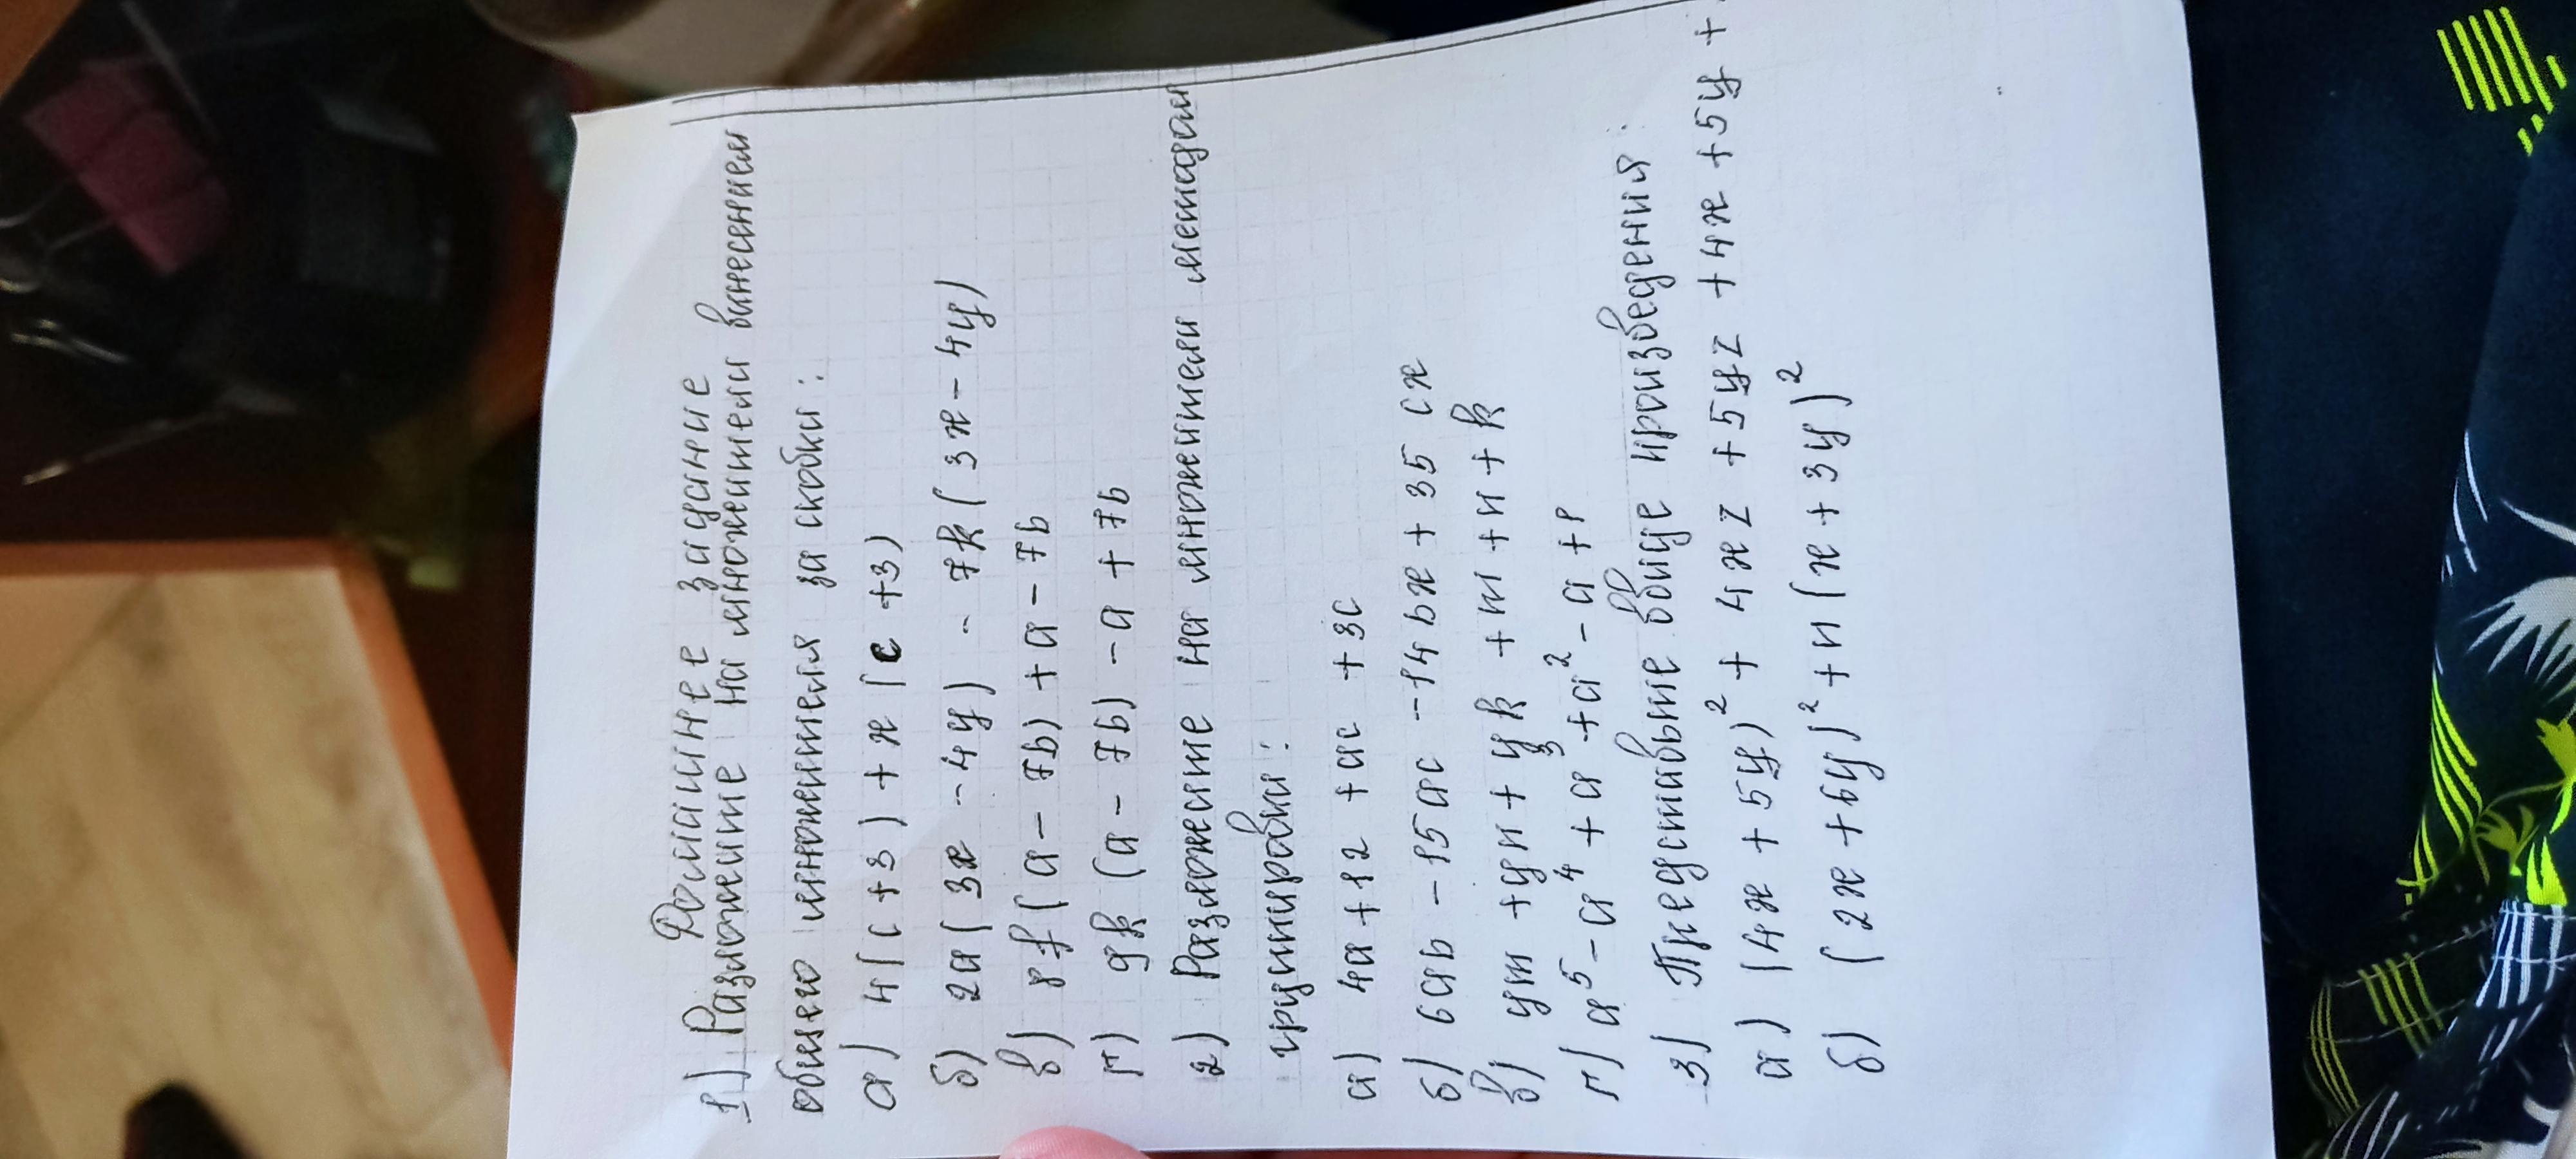 Домашнее задание
1) Разложение на множители вынесением
общего множителя за скобки:
а) 4(c+3)+x(c+3)
б) 2a(3x-4y)-7k(3x-4y)
в) 8f(a-7b)+a-7b
г) 9k(a-7b)-a+7b
2) Разложение на множители методом
группировки:
а) 4a+12+ac+3c
б) 6ab-15ac-14bx+35cx
в) ym+yn+yk+m+n+k
г) a⁵-a⁴+a³+a²-a+1
3) Представьте ввиде произведения:
а) (4x+5y)²+4xz+5yz+4x+5y+
б) (2x+6y)²+n(x+3y)²